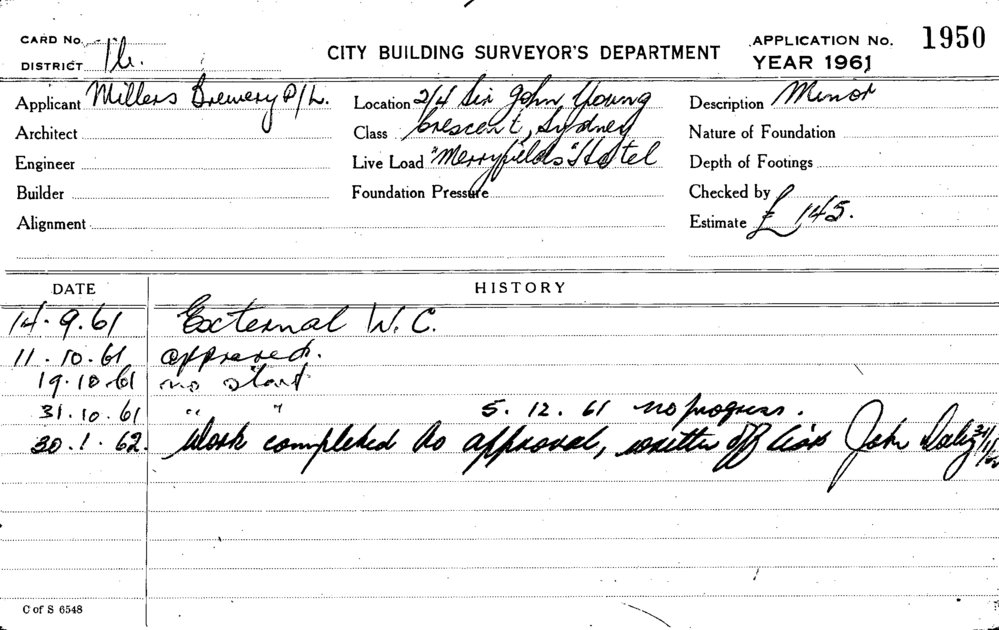 CARD No.
DISTRICT
CITY BUILDING SURVEYOR'S DEPARTMENT
APPLICATION No. 1950
YEAR 1961
Applicant Millers Brewery P/L.
Location 2/4 Sir John Young
Description Minor
Architect
Class Crescent, Sydney
Nature of Foundation
Engineer
Live Load "Merryfields" Hotel
Depth of Footings
Builder
Foundation Pressure
Checked by
Alignment
Estimate £ 145.
DATE HISTORY
14.9.61 External W.C.
11.10.61 approved.
19.10.61 no start
31.10.61 " " 5.12.61 no progress.
30.1.62. Work completed to approval, written off John Daly
C of S 6548